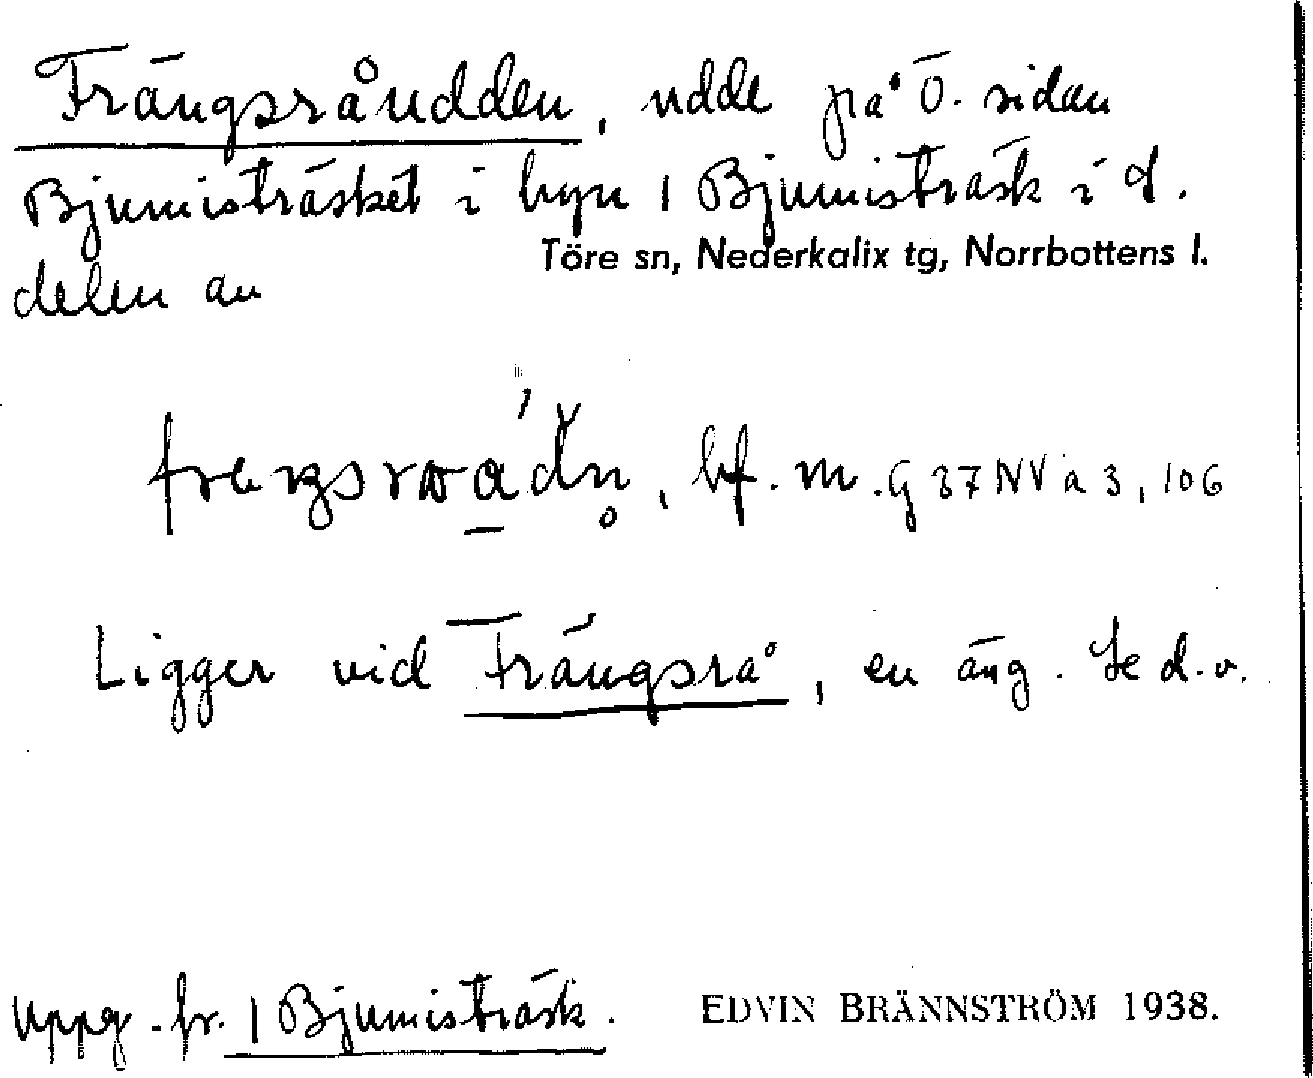 Frängsråudden, udde på Ö. sidan
Bjumisträsket i byn 1 Bjumisträsk i S.
Töre sn, Nederkalix tg, Norrbottens l.
delen av
bf. m. G 37 NV a 3, 106
Ligger vid Frängsrå, en äng. Se d.o.
Uppg. fr. 1 Bjumisträsk.
EDVIN BRÄNNSTRÖM 1938.